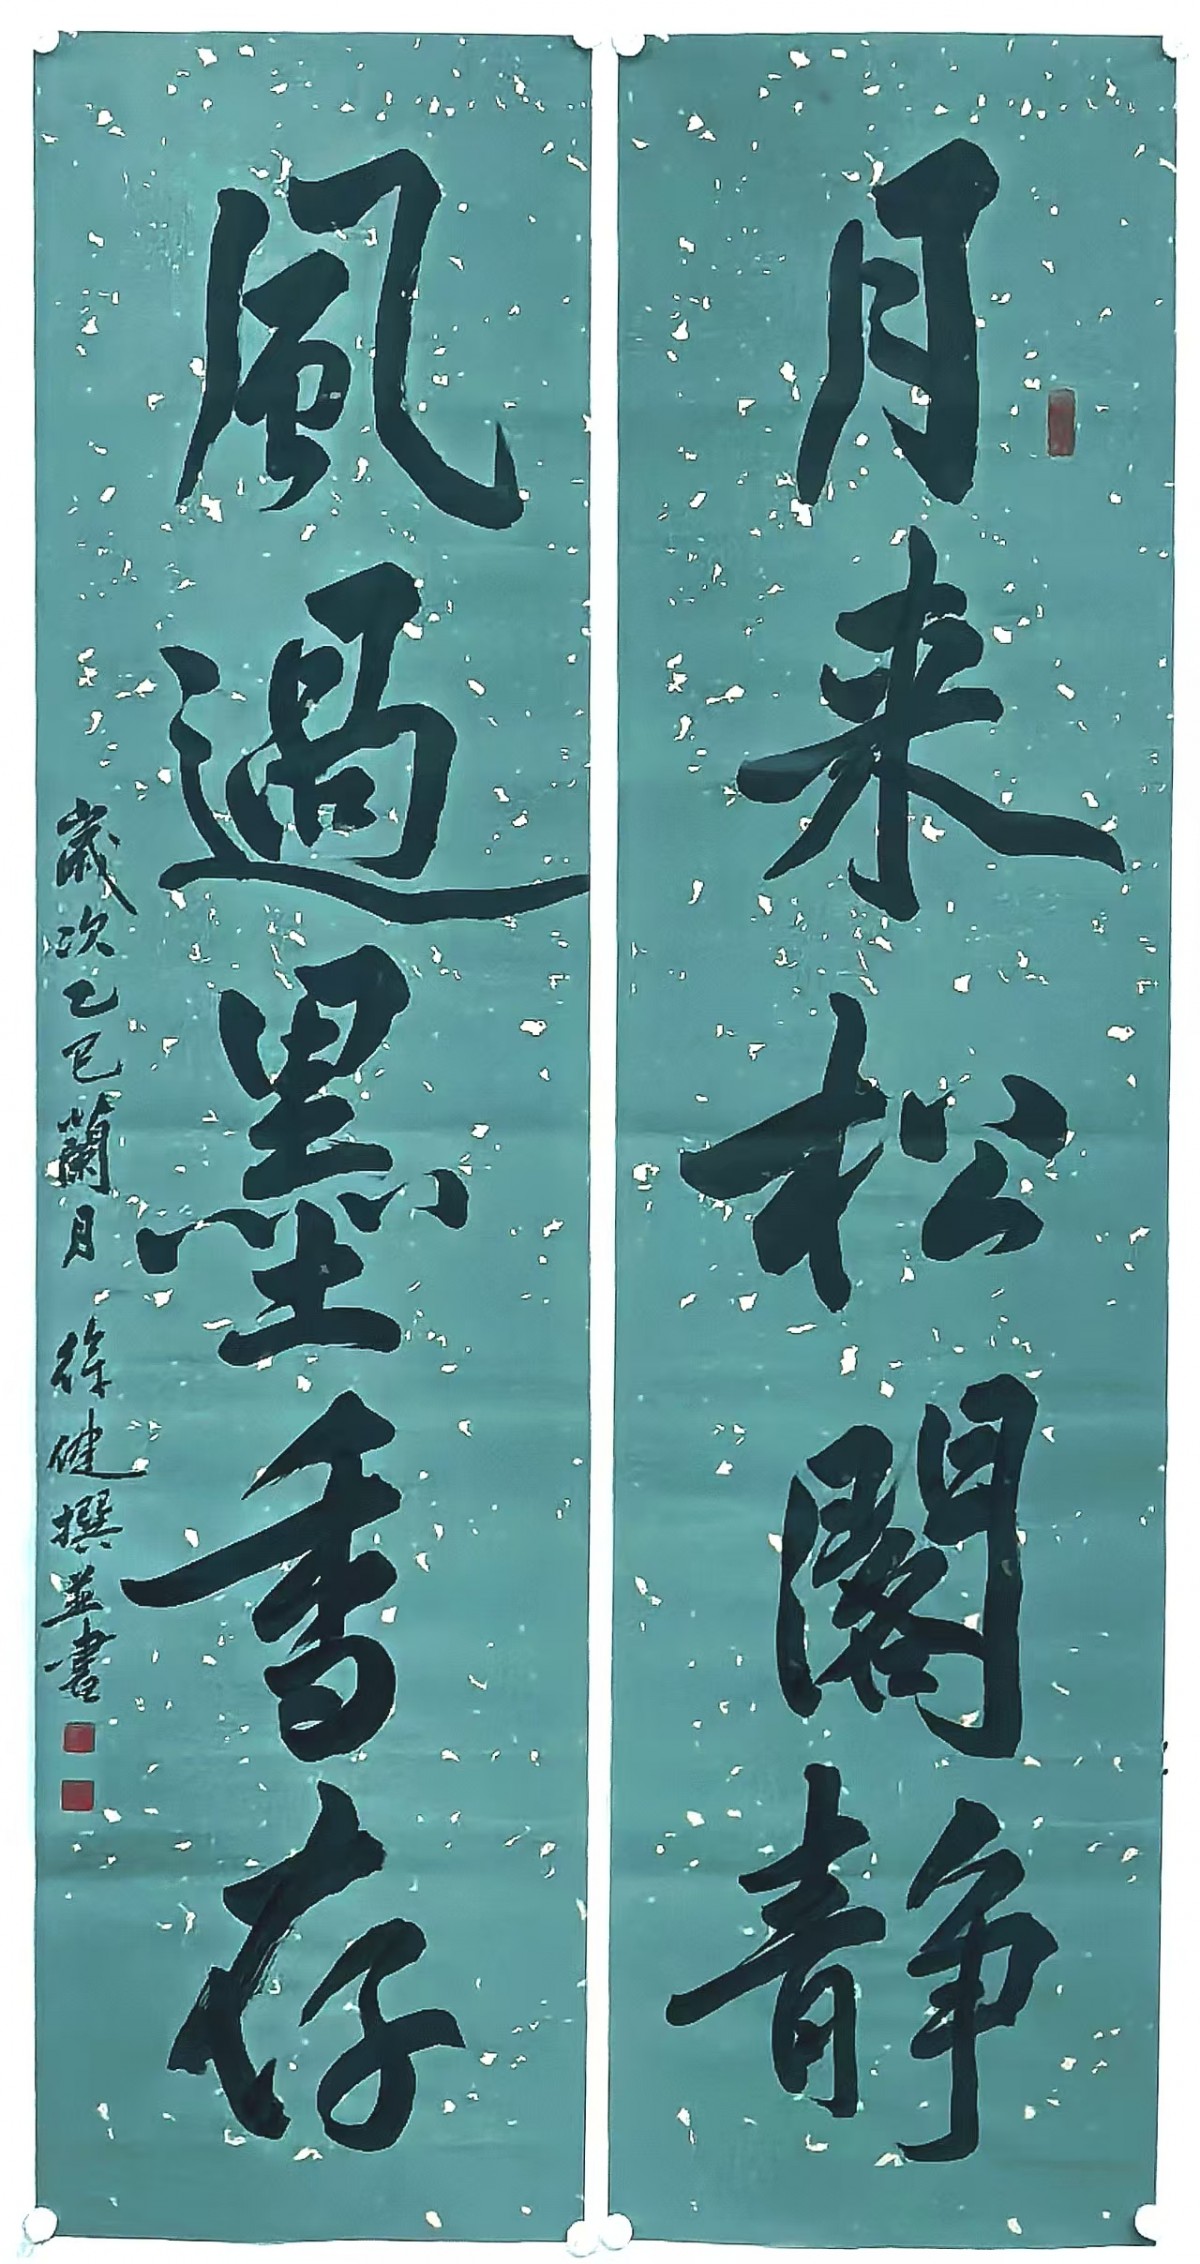 月来松閣静
風過墨香存
歲次乙巳蘭月 徐健撰並書